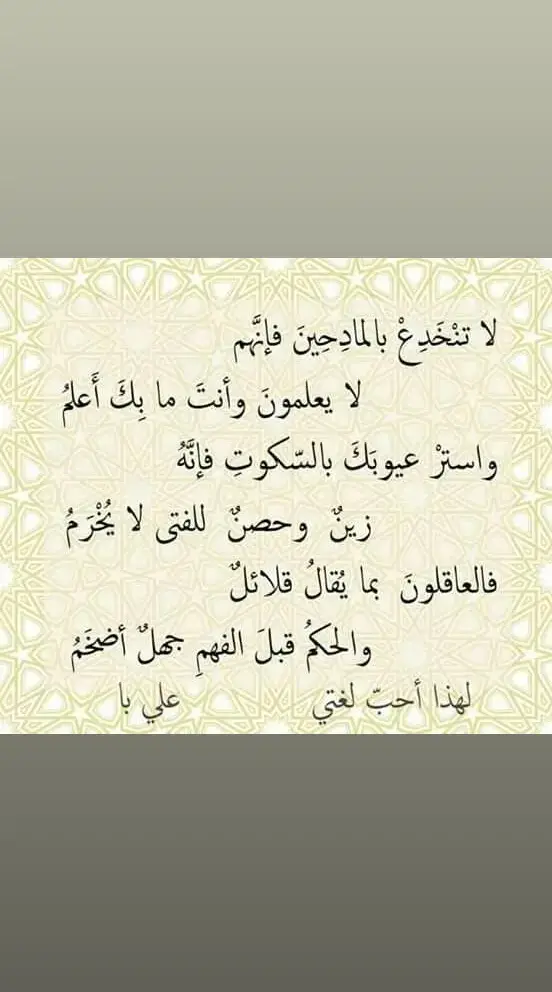 لا تنْخَدِعْ بالمادِحِينَ فإنَّهم
لا يعلمونَ وأنتَ ما بِكَ أَعلمُ
واسترْ عيوبَكَ بالسّكوتِ فإنَّهُ
زينٌ وحصنٌ للفتى لا يُخْرَمُ
فالعاقلونَ بما يُقالُ قلائلٌ
والحكمُ قبلَ الفهمِ جهلٌ أضخَمُ
لهذا أحبّ لغتي علي با